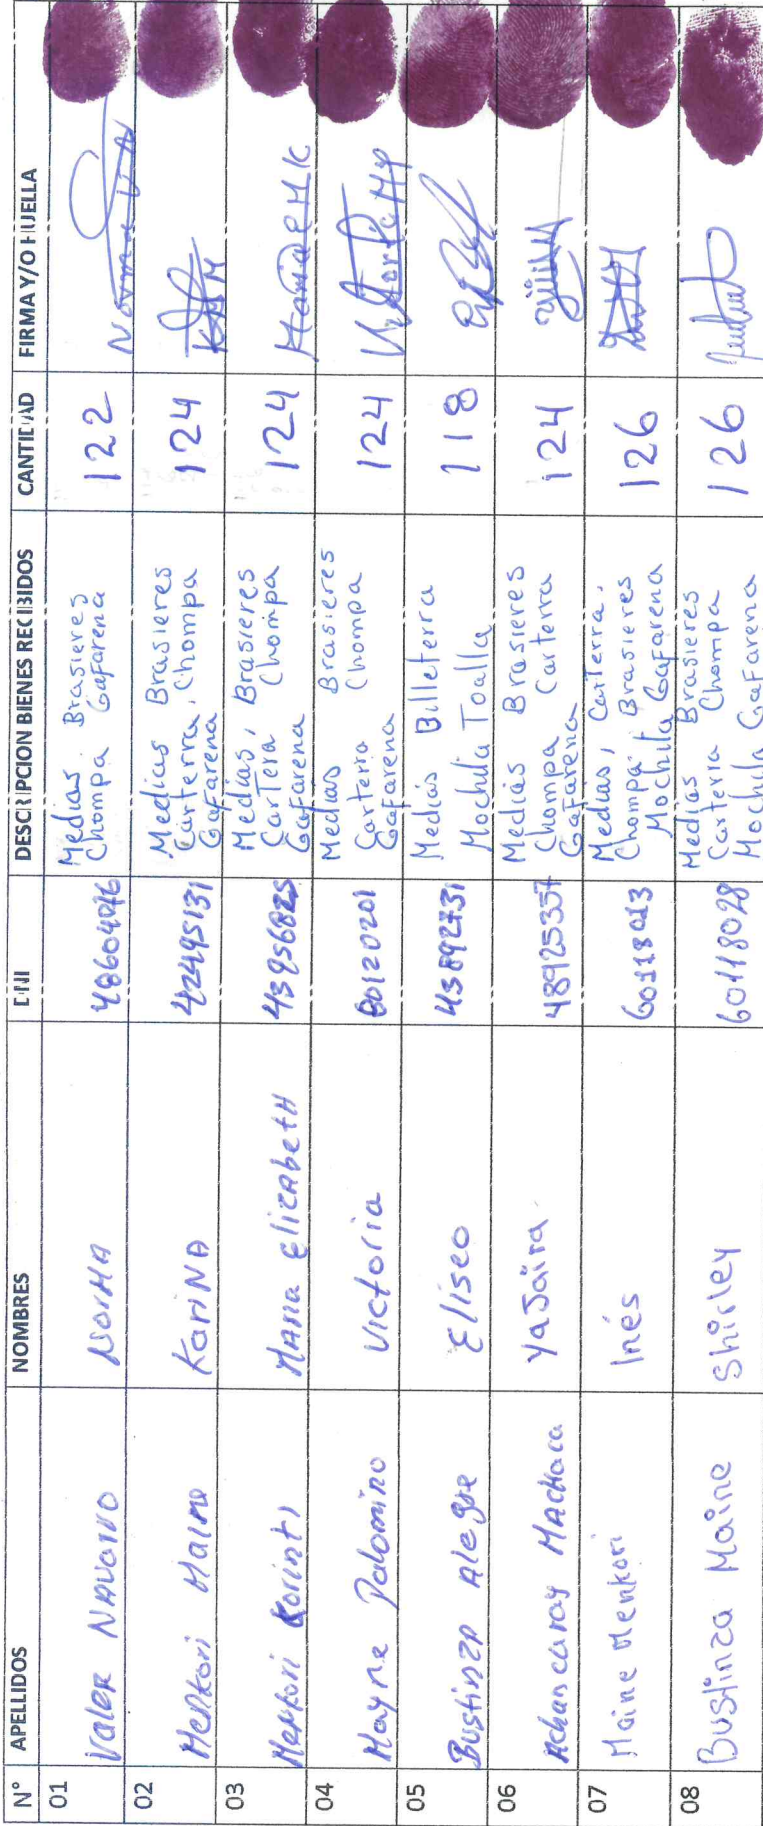 N° APELLIDOS NOMBRES DNI DESCRIPCION BIENES RECIBIDOS CANTIDAD FIRMA Y/O HUELLA
01 Valer NAVArro NorMA 48604076 Medias Brasieres 122 Norma VN
Chompa Gafarena
02 Menkori Maine KariNA 42495131 Medias Brasieres 124 KMM
Carterra, Chompa
Gafarena
03 Menkori Korinti MARIA ElizabetH 43956825 Medias, Brasieres 124 MariaEMK
Cartera Chompa
Gafarena
04 Mayne Palomino Victoria 80120201 Medias Brasieres 124 VictoriaMP
Carterra Chompa
Gafarena
05 Bustinza Alegre Eliseo 43892731 Medias Billeterra 118
Mochila Toalla
06 Achancaray MAcHaca YaJaïra. 48925357 Medias Brasieres 124
Chompa Carterra
Gafarena
07 Maine Menkori Inés 60118013 Medias, Carterra, 126
Chompa Brasieres
Mochila Gafarena
08 Bustinza Maine Shirley 60118028 Medias Brasieres 126
Carterra Chompa
Mochila Gafarena